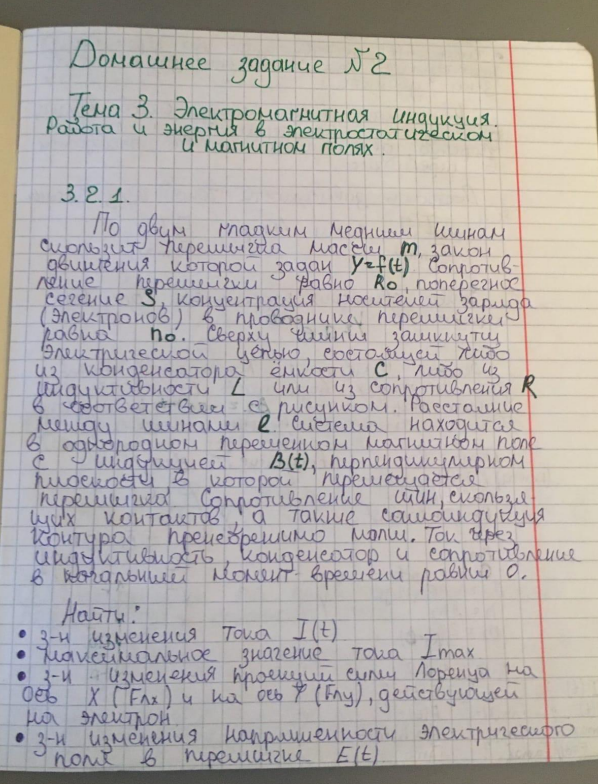 Домашнее задание №2
Тема 3. Электромагнитная индукция.
Работа и энергия в электростатическом
и магнитном полях.
3.2.1.
По двум гладким медным шинам
скользит перемычка массы m, закон
движения которой задан y=f(t) Сопротив-
ление перемычки равно R₀, поперечное
сечение S, концентрация носителей заряда
(электронов) в проводнике перемычки
равна n₀. Сверху шины замкнуты
электрической цепью, состоящей либо
из конденсатора ёмкости C, либо из
индуктивности L или из сопротивления R
в соответствии с рисунком. Расстояние
между шинами l система находится
в однородном переменном магнитном поле
с индукцией B(t), перпендикулярном
плоскости в которой перемещается
перемычка Сопротивление шин, скользя
щих контактов, а также самоиндукция
контура пренебрежимо малы. Ток через
индуктивность, конденсатор и сопротивление
в начальный момент времени равны 0.
Найти:
• з-н изменения тока I(t)
• максимальное значение тока Imax
• з-н изменения проекций силы Лоренца на
ось X (Fлx) и на ось Y (Fлy), действующей
на электрон
• з-н изменения напряженности электрического
поля в перемычке E(t)